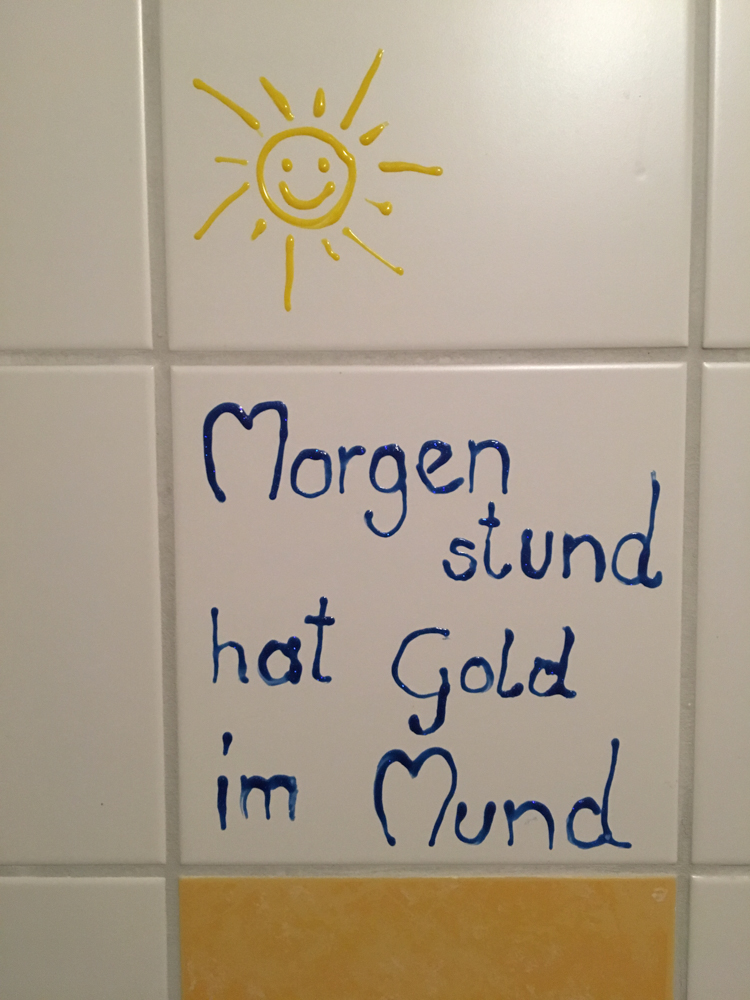 Morgen
stund
hat Gold
im Mund